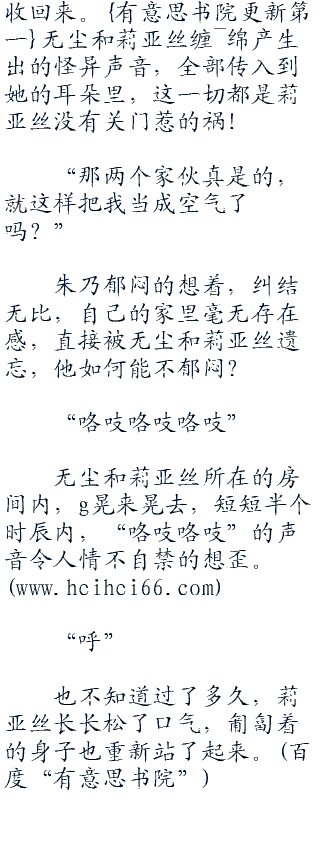 收回来。{有意思书院更新第
一}无尘和莉亚丝缠¯绵产生
出的怪异声音，全部传入到
她的耳朵里，这一切都是莉
亚丝没有关门惹的祸!
“那两个家伙真是的，
就这样把我当成空气了
吗？”
朱乃郁闷的想着，纠结
无比，自己的家里毫无存在
感，直接被无尘和莉亚丝遗
忘，他如何能不郁闷？
“咯吱咯吱咯吱”
无尘和莉亚丝所在的房
间内，g晃来晃去，短短半个
时辰内，“咯吱咯吱”的声
音令人情不自禁的想歪。
(www.hcihci66.com)
“呼”
也不知道过了多久，莉
亚丝长长松了口气，匍匐着
的身子也重新站了起来。(百
度“有意思书院”)